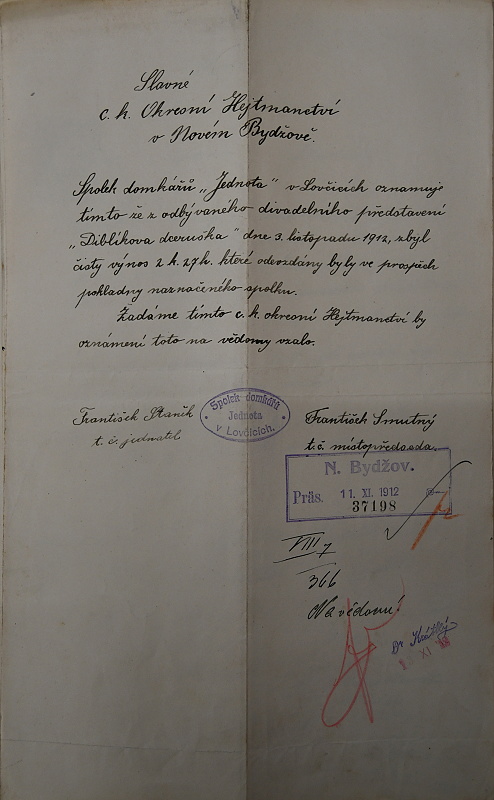 Slavné
c. k. Okresní Hejtmanství
v Novém Bydžově.
Spolek domkářů „Jednota“ v Lovčicích oznamuje
tímto že z odbývaného divadelního představení
„Diblíkova dceruška“ dne 3. listopadu 1912, zbyl
čistý výnos 2 k. 27h. které odevzdány byly ve prospěch
pokladny naznačeného spolku.
Žádáme tímto c. k. okresní Hejtmanství by
oznámení toto na vědomy vzalo.
František Staněk
t. č. jednatel
Spolek domkářů
Jednota
v Lovčicích.
František Smutný
t. č. místopředseda.
N. Bydžov.
Präs. 11. XI. 1912
37198
VIII 7
366
Na vědomí!
Dr
XI